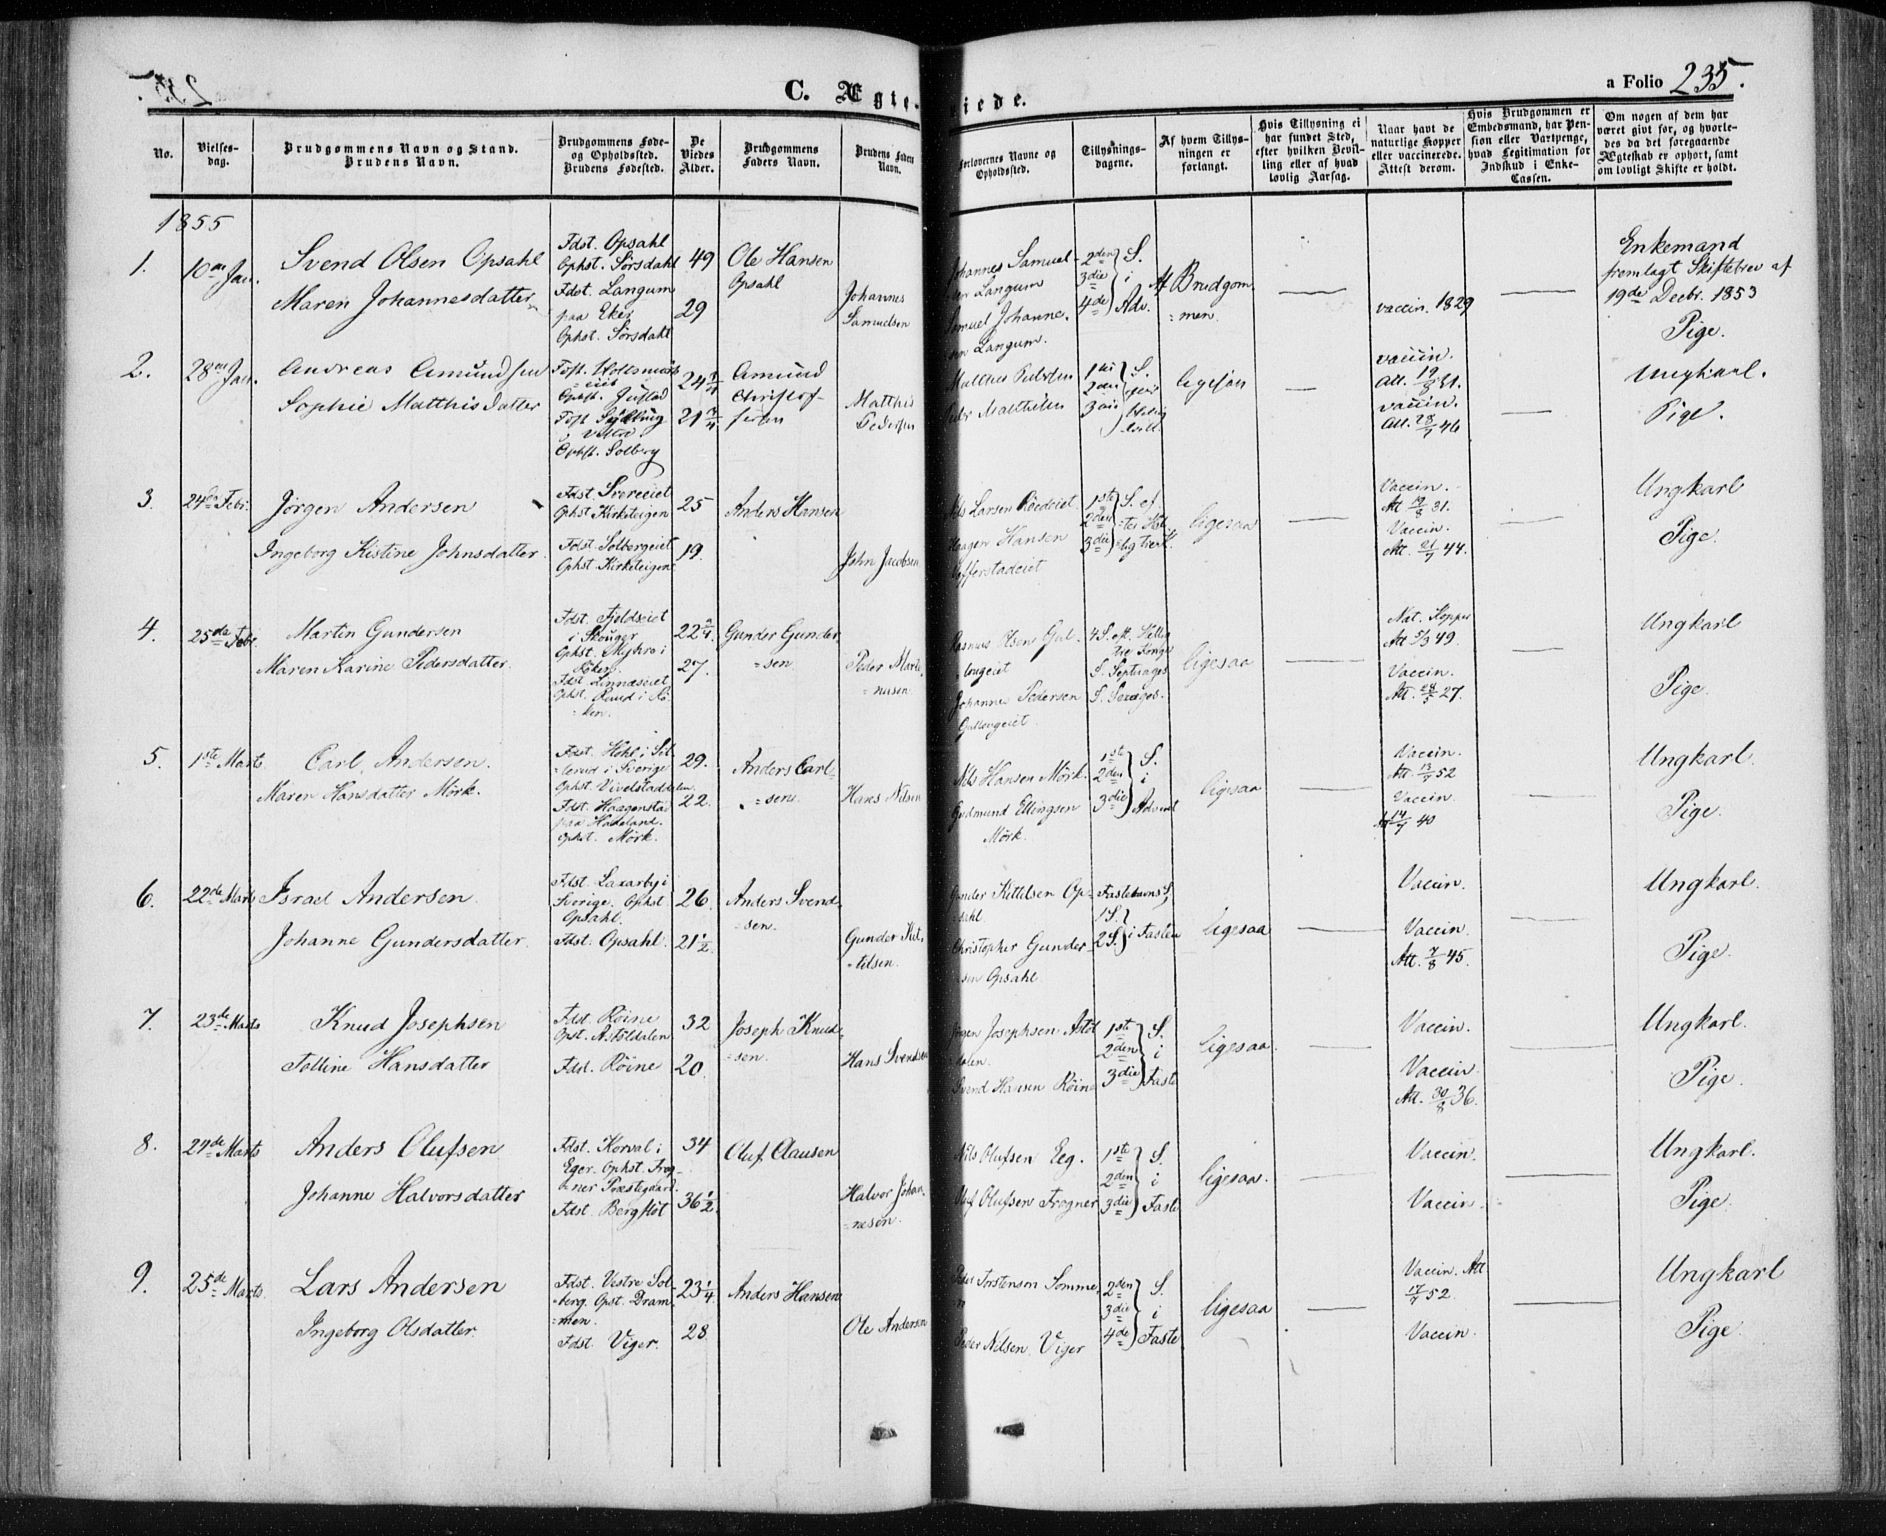 C. Ægteviede.
a Folio 235.
No.
Vielses-
dag.
Brudgommens Navn og Stand.
Brudens Navn.
Brudgommens Føde-
og Opholdssted.
Brudens Fødested.
De
Viedes
Alder.
Brudgommens
Faders Navn.
Brudens Faders
Navn.
Forlovernes Navne og
Opholdssted.
Tillysnings-
dagene.
Af hvem Tillys-
ningen er
forlangt.
Hvis Tillysning ei
har fundet Sted,
efter hvilken Bevil-
ling eller af hvad
lovlig Aarsag.
Naar havt de
naturlige Kopper
eller vaccinerede.
Attest derom.
Hvis Brudgommen er
Embedsmand, har Pen-
sion eller Vartpenge,
hvad Legitimation for
Indskud i Enke-
Cassen.
Om nogen af dem har
været givt for, og hvorle-
des da det foregaaende
Ægteskab er ophørt, samt
om lovligt Skifte er holdt.
1855
1.
10de Jan.
Svend Olsen Opsahl
Maren Johannesdatter
Fdst. Opsahl
Ophst. Sørsdahl
Fdst. Langum
paa Eker
Ophst. Sørsdahl
49
29
Ole Hansen
Opsahl
Johannes
Samuelsen
Johannes Samuel-
sen Langum
Samuel Johanne-
sen Langum.
2den
3die
4de
S.
i
Adv.
Af Brudgom-
=men.
vaccin. 1829
Enkemand
fremlagt Skiftebrev af
19de Decbr. 1853
Pige.
2.
28de Jan.
Andreas Amundsen
Sophie Matthisdatter
Ophst. Solberg
24 1/4
21 3/4
Amund
Christof-
fersen
Matthis
Pedersen
1ste
2den
3die
S.
ligesaa
vaccin.
Att. 19/8 31.
vaccin.
Att. 28/7 46
Ungkarl.
Pige.
3.
24de Febr.
Jørgen Andersen
Ingeborg Kistine Johnsdatter.
Fdst. Svereeiet
Ophst. Kirketeigen
Fdst. Solbergeiet
Ophst. Kirketeigen
25
19.
Anders Hansen
John Jacobsen
Nils Larsen
Haagen Hansen
1ste
2den
3die
S. ef-
ligesaa
Vaccin.
Att 19/8 31.
Vaccin.
Att. 21/7 44.
Ungkarl
Pige.
4.
25de Febr.
Martin Gundersen
Maren Karine Pedersdatter.
Fdst. Fjeldseiet
i Skouger
Ophst. Myhre i
Røken
Fdst. Linnæseiet
Ophst. Ruud i Rø-
=ken.
22 3/4.
27.
Gunder Gunder-
=sen.
Peder Marti-
=nusen.
Rasmus Olsen Gul-
=laugeiet
Johannes Pedersen
Gullaugeiet.
4 S. eft. Hellig
tre Konger
S. Septuages.
S. Sexages.
ligesaa
Nat. Kopper
Att 5/3 49.
Vaccin.
Att. 28/5 27.
Ungkarl
Pige.
5.
1ste Marts
Carl Andersen.
Maren Hansdatter Mörk.
Fdst. Hohl i Sil-
=lerud i Sverige
Ophst. Vivelstaddalen
Fdst. Haagensta
paa Hadeland.
Ophst. Mörk.
29.
22.
Anders Carl-
=sen.
Hans Nilsen
Nils Hansen Mörk.
Gudmund Ellingsen
Mörk.
1ste
2den
3die
S.
i
Advent
ligesaa
Vaccin.
Att. 13/7 52
Vaccin.
Att 14/7 40
Ungkarl.
Pige.
6.
22de Marts
Israel Andersen.
Johanne Gundersdatter.
Fdst. Laxarby i
Sverige. Ophst
Opsahl.
Fdst. Opsahl.
26.
21 1/2
Anders Svend-
=sen.
Gunder Kit-
=tilsen.
Gunder Kittilsen Op-
=sahl.
Christopher Gunder-
=sen Opsahl
Fastelavns S,
1 S.
2 S.
i Fasten
ligesaa
Vaccin.
Vaccin.
Att. 7/8 45.
Ungkarl.
Pige.
7.
23de Marts
Knud Josephsen
Tolline Hansdatter
Fdst. Röine
Opst. Astöldalen
Fdst. Röine
32
20.
Joseph Knud-
=sen.
Hans Svendsen
Jörgen Josephsen Astöl-
=dalen.
Svend Hansen Röine
1ste
2den
3die
S.
i
Faste
ligesaa
Vaccin.
Vaccin.
Att. 30/8 36.
Ungkarl.
Pige.
8.
24de Marts
Anders Olufsen
Johanne Halvorsdatter
Fdst. Korval i
Eger. Ophst. Frog-
=ner Præstegaard.
Fdst. Bergflöt
34
36 1/2.
Oluf Clausen
Halvor Johan-
=nesen.
Nils Olufsen Eeg.
Oluf Olufsen Frogner
1ste
2den
3die
S.
i
Faste
ligesaa.
Vaccin.
Vaccin.
Ungkarl.
Pige.
9.
25de Marts.
Lars Andersen
Ingeborg Olsdatter.
Fdst. Vestre Sol-
=berg. Opst. Dram-
=men.
Fdst. Viger.
23 1/4
28.
Anders Hansen
Ole Andersen
Peder Torstensen Somme-
n
Peder Nilsen Viger
2den
3die
4de
S.
i
Faste
ligesaa
Vaccin. Att
17/7 52.
Vaccin.
Ungkarl
Pige.